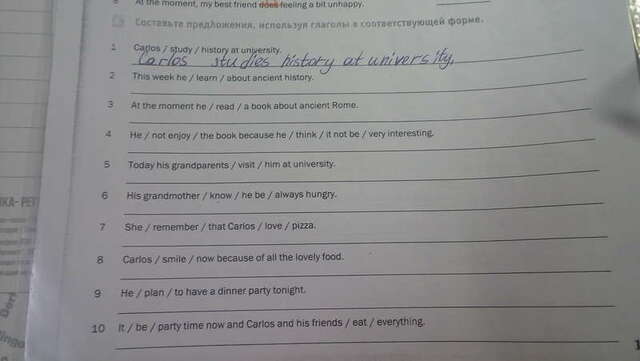 At the moment, my best friend does feeling a bit unhappy.
Составьте предложения, используя глаголы в соответствующей форме.
1 Carlos / study / history at university.
Carlos studies history at university.
2 This week he / learn / about ancient history.
3 At the moment he / read / a book about ancient Rome.
4 He / not enjoy / the book because he / think / it not be / very interesting.
5 Today his grandparents / visit / him at university.
6 His grandmother / know / he be / always hungry.
7 She / remember / that Carlos / love / pizza.
8 Carlos / smile / now because of all the lovely food.
9 He / plan / to have a dinner party tonight.
10 It / be / party time now and Carlos and his friends / eat / everything.